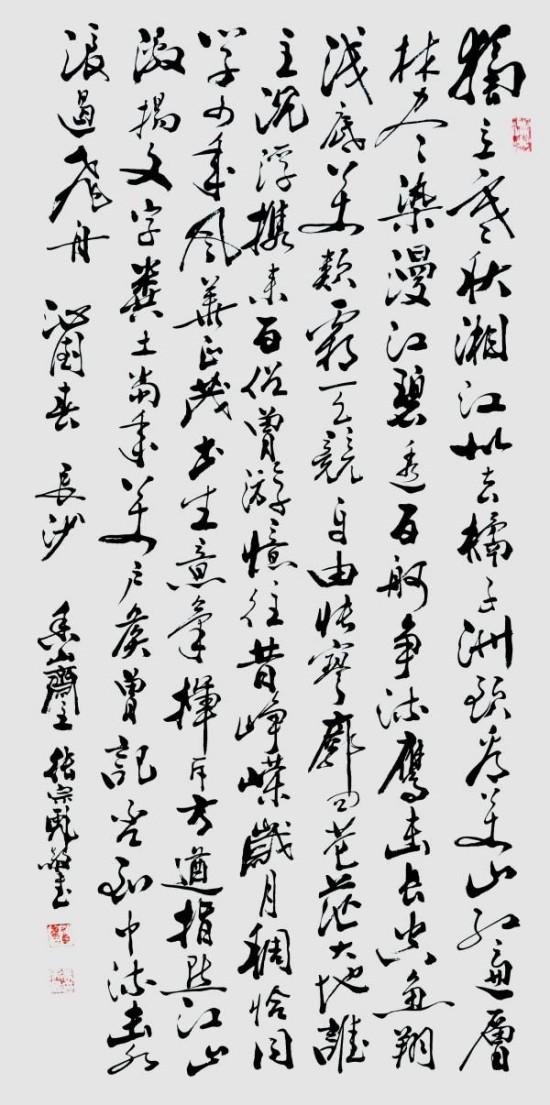 獨立寒秋湘江北去橘子洲頭看万山红遍層
林尽染漫江碧透百舸争流鹰击长空鱼翔
浅底万類霜天競自由怅寥廓问苍茫大地誰
主沉浮携来百侣曾游憶往昔峥嵘歲月稠恰同
学少年风華正茂书生意氣揮斥方遒指點江山
激揚文字糞土當年万户侯曾記否到中流击水
浪遏飛舟 沁園春 長沙 山齋主 張宗